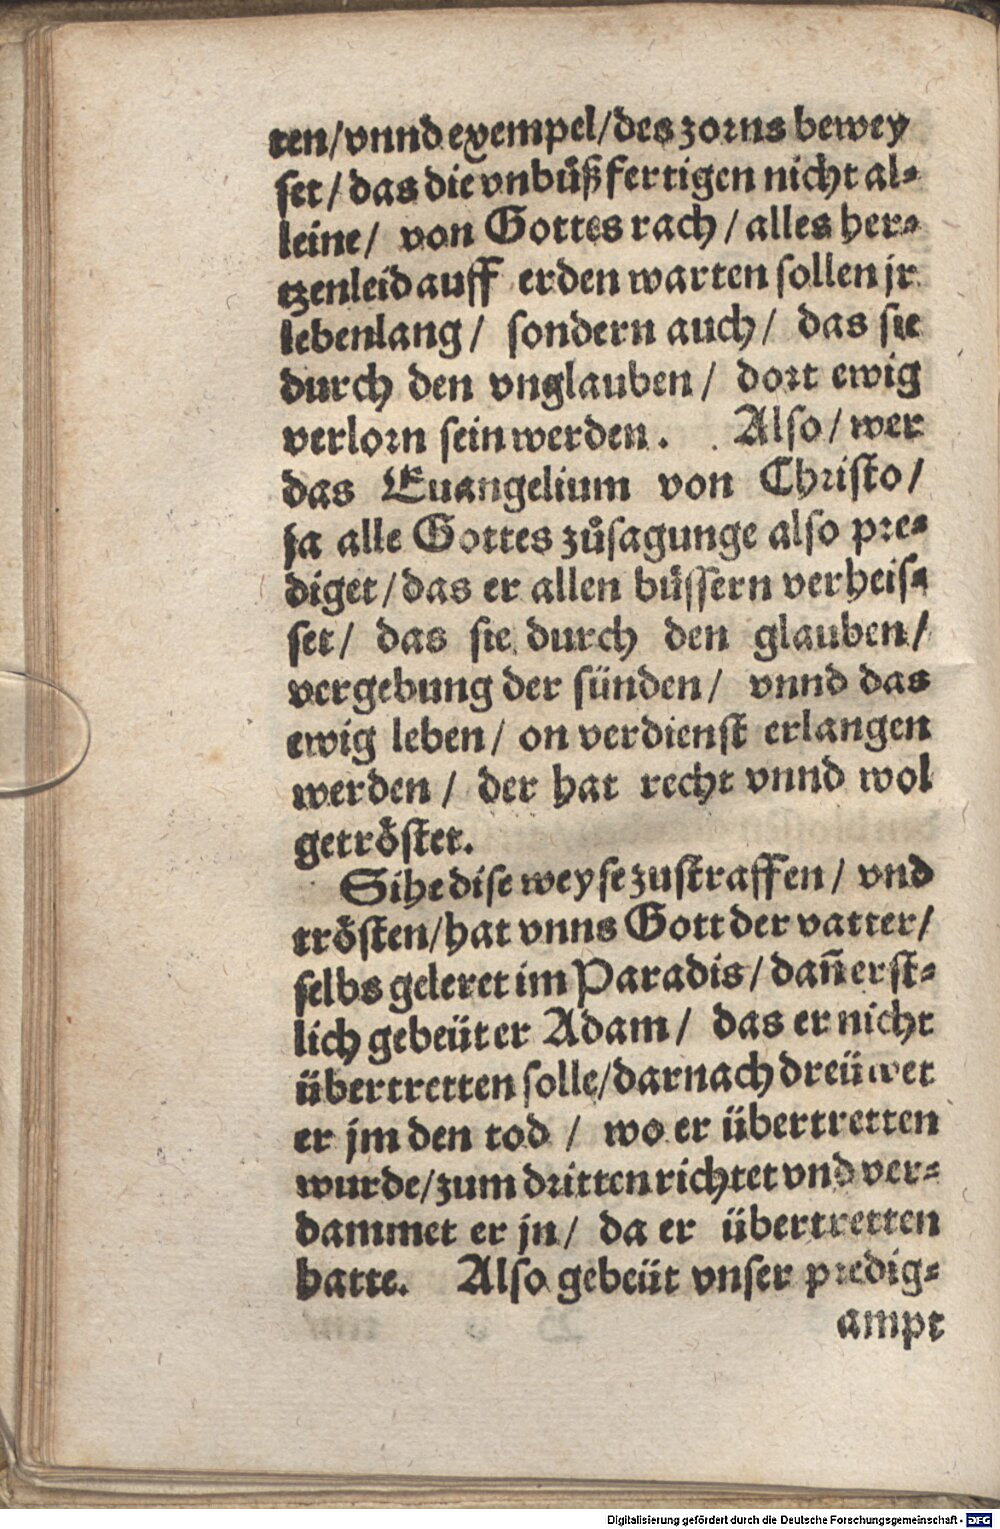 ten/vnnd exempel/des zorns bewey
set/das die vnbůßfertigen nicht al-
leine/ von Gottes rach/alles her-
tzenleid auff erden warten sollen jr
lebenlang/ sondern auch/ das sie
durch den vnglauben/ dort ewig
verlorn sein werden. Also/wer
das Euangelium von Christo/
ja alle Gottes zůsagunge also pre-
diget/das er allen bůssern verheis-
set/ das sie durch den glauben/
vergebung der sünden/ vnnd das
ewig leben/ on verdienst erlangen
werden/ der hat recht vnnd wol
getröstet.
Sihe dise weyse zustraffen/ vnd
trösten/hat vnns Gott der vatter/
selbs geleret im Paradis/dañ erst-
lich gebeüt er Adam/ das er nicht
übertretten solle/darnach dreüwet
er jm den tod/ wo er übertretten
wurde/zum dritten richtet vnd ver-
dammet er jn/ da er übertretten
hatte. Also gebeüt vnser predig-
ampt
Digitalisierung gefördert durch die Deutsche Forschungsgemeinschaft - DFG